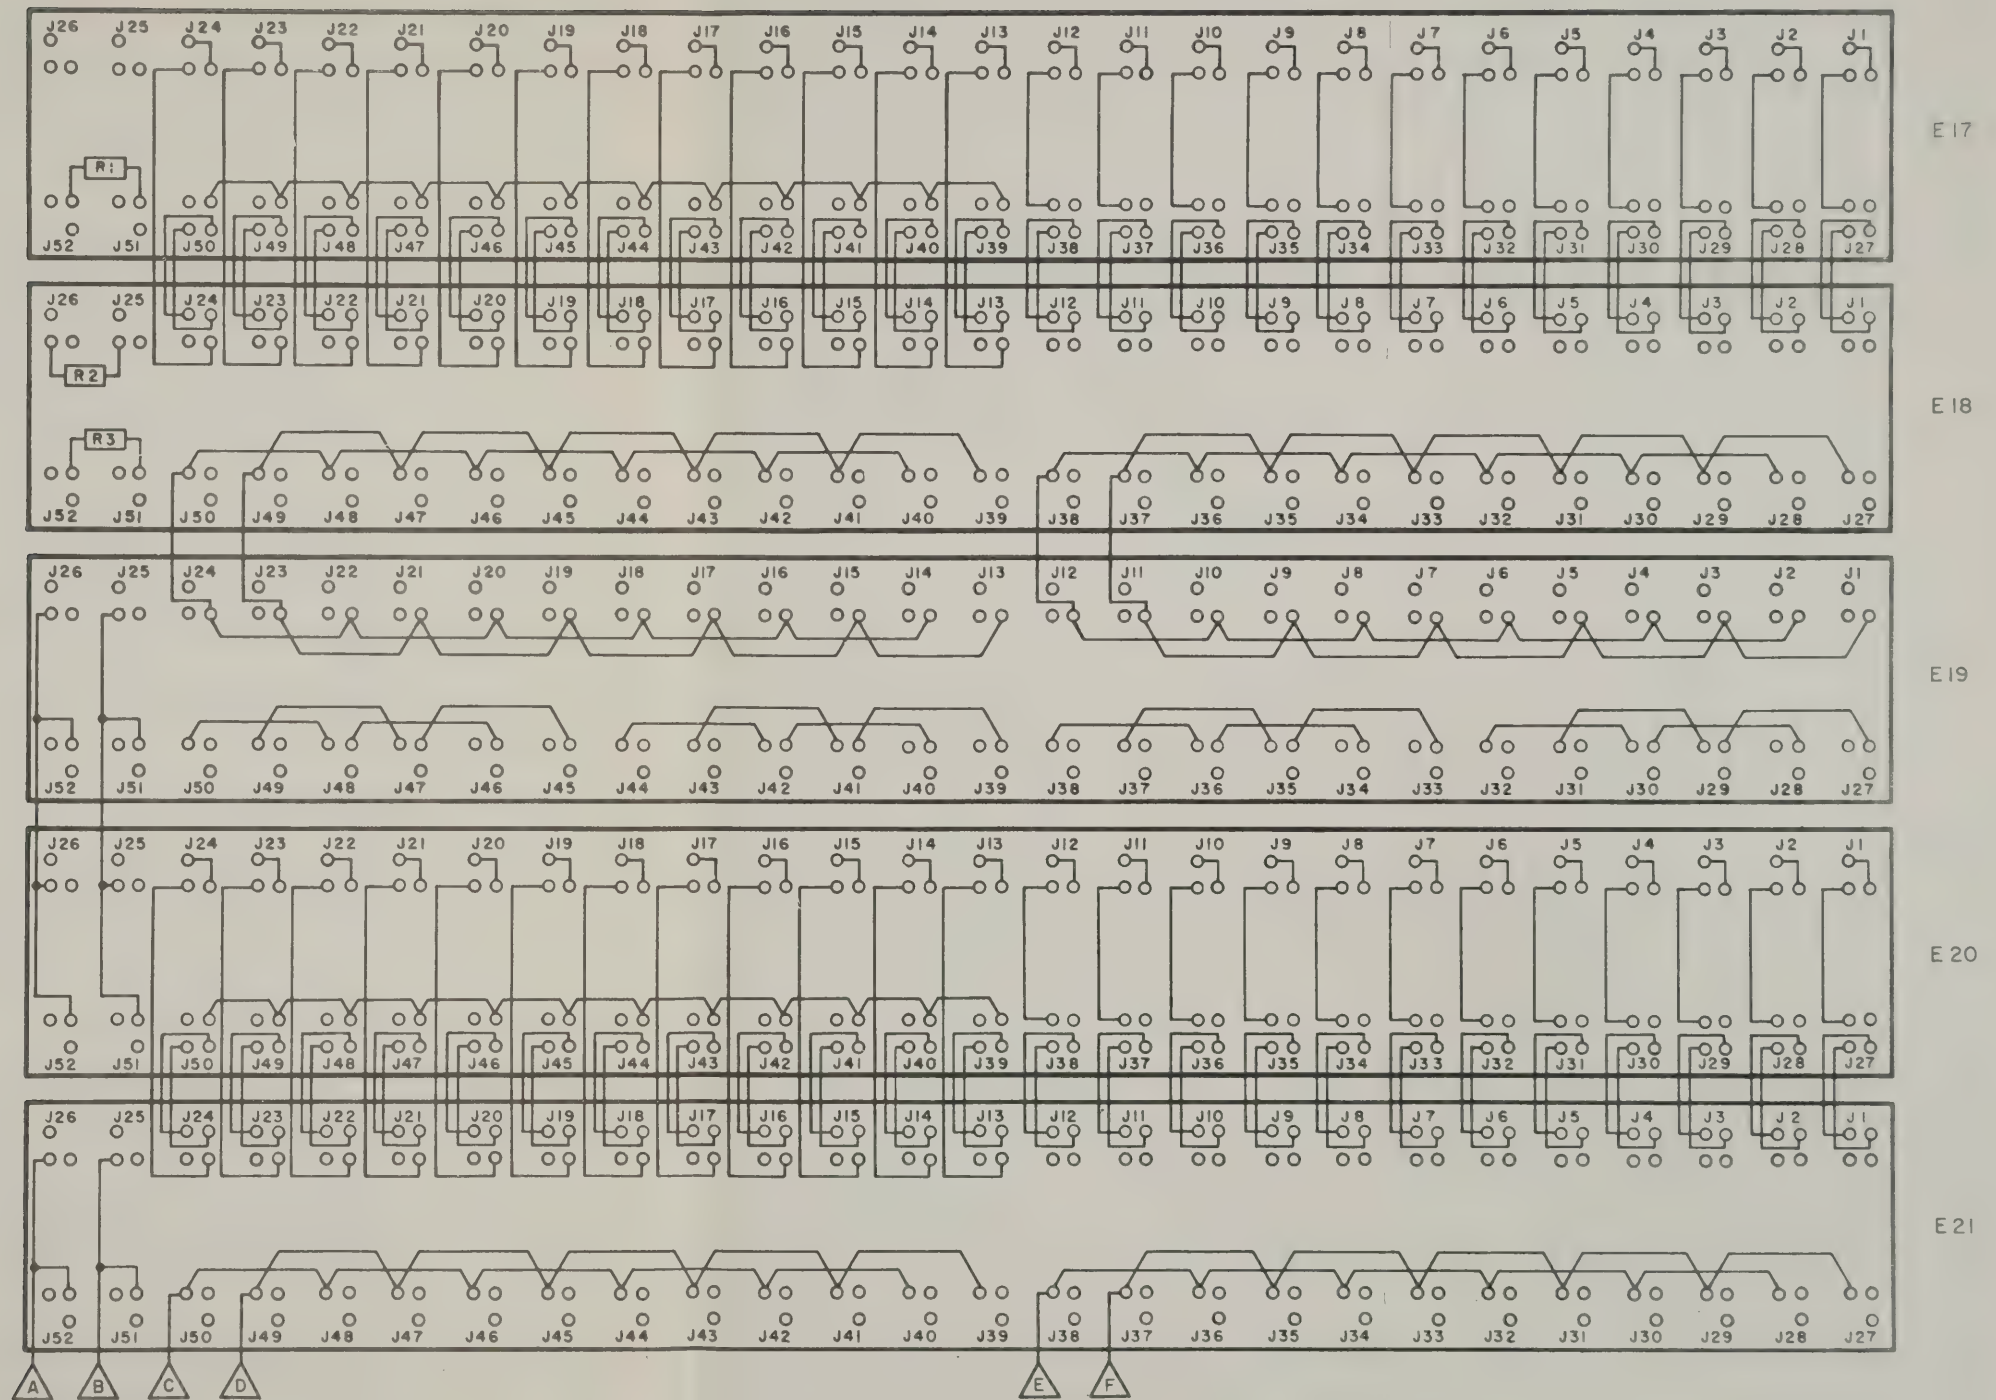 J26 J25 J24 J23 J22 J21 J20 J19 J18 J17 J16 J15 J14 J13 J12 J11 J10 J9 J8 J7 J6 J5 J4 J3 J2 J1
E17
R1
J52 J51 J50 J49 J48 J47 J46 J45 J44 J43 J42 J41 J40 J39 J38 J37 J36 J35 J34 J33 J32 J31 J30 J29 J28 J27
J26 J25 J24 J23 J22 J21 J20 J19 J18 J17 J16 J15 J14 J13 J12 J11 J10 J9 J8 J7 J6 J5 J4 J3 J2 J1
R2
E18
R3
J52 J51 J50 J49 J48 J47 J46 J45 J44 J43 J42 J41 J40 J39 J38 J37 J36 J35 J34 J33 J32 J31 J30 J29 J28 J27
J26 J25 J24 J23 J22 J21 J20 J19 J18 J17 J16 J15 J14 J13 J12 J11 J10 J9 J8 J7 J6 J5 J4 J3 J2 J1
E19
J52 J51 J50 J49 J48 J47 J46 J45 J44 J43 J42 J41 J40 J39 J38 J37 J36 J35 J34 J33 J32 J31 J30 J29 J28 J27
J26 J25 J24 J23 J22 J21 J20 J19 J18 J17 J16 J15 J14 J13 J12 J11 J10 J9 J8 J7 J6 J5 J4 J3 J2 J1
E20
J52 J51 J50 J49 J48 J47 J46 J45 J44 J43 J42 J41 J40 J39 J38 J37 J36 J35 J34 J33 J32 J31 J30 J29 J28 J27
J26 J25 J24 J23 J22 J21 J20 J19 J18 J17 J16 J15 J14 J13 J12 J11 J10 J9 J8 J7 J6 J5 J4 J3 J2 J1
E21
J52 J51 J50 J49 J48 J47 J46 J45 J44 J43 J42 J41 J40 J39 J38 J37 J36 J35 J34 J33 J32 J31 J30 J29 J28 J27
A B C D E F